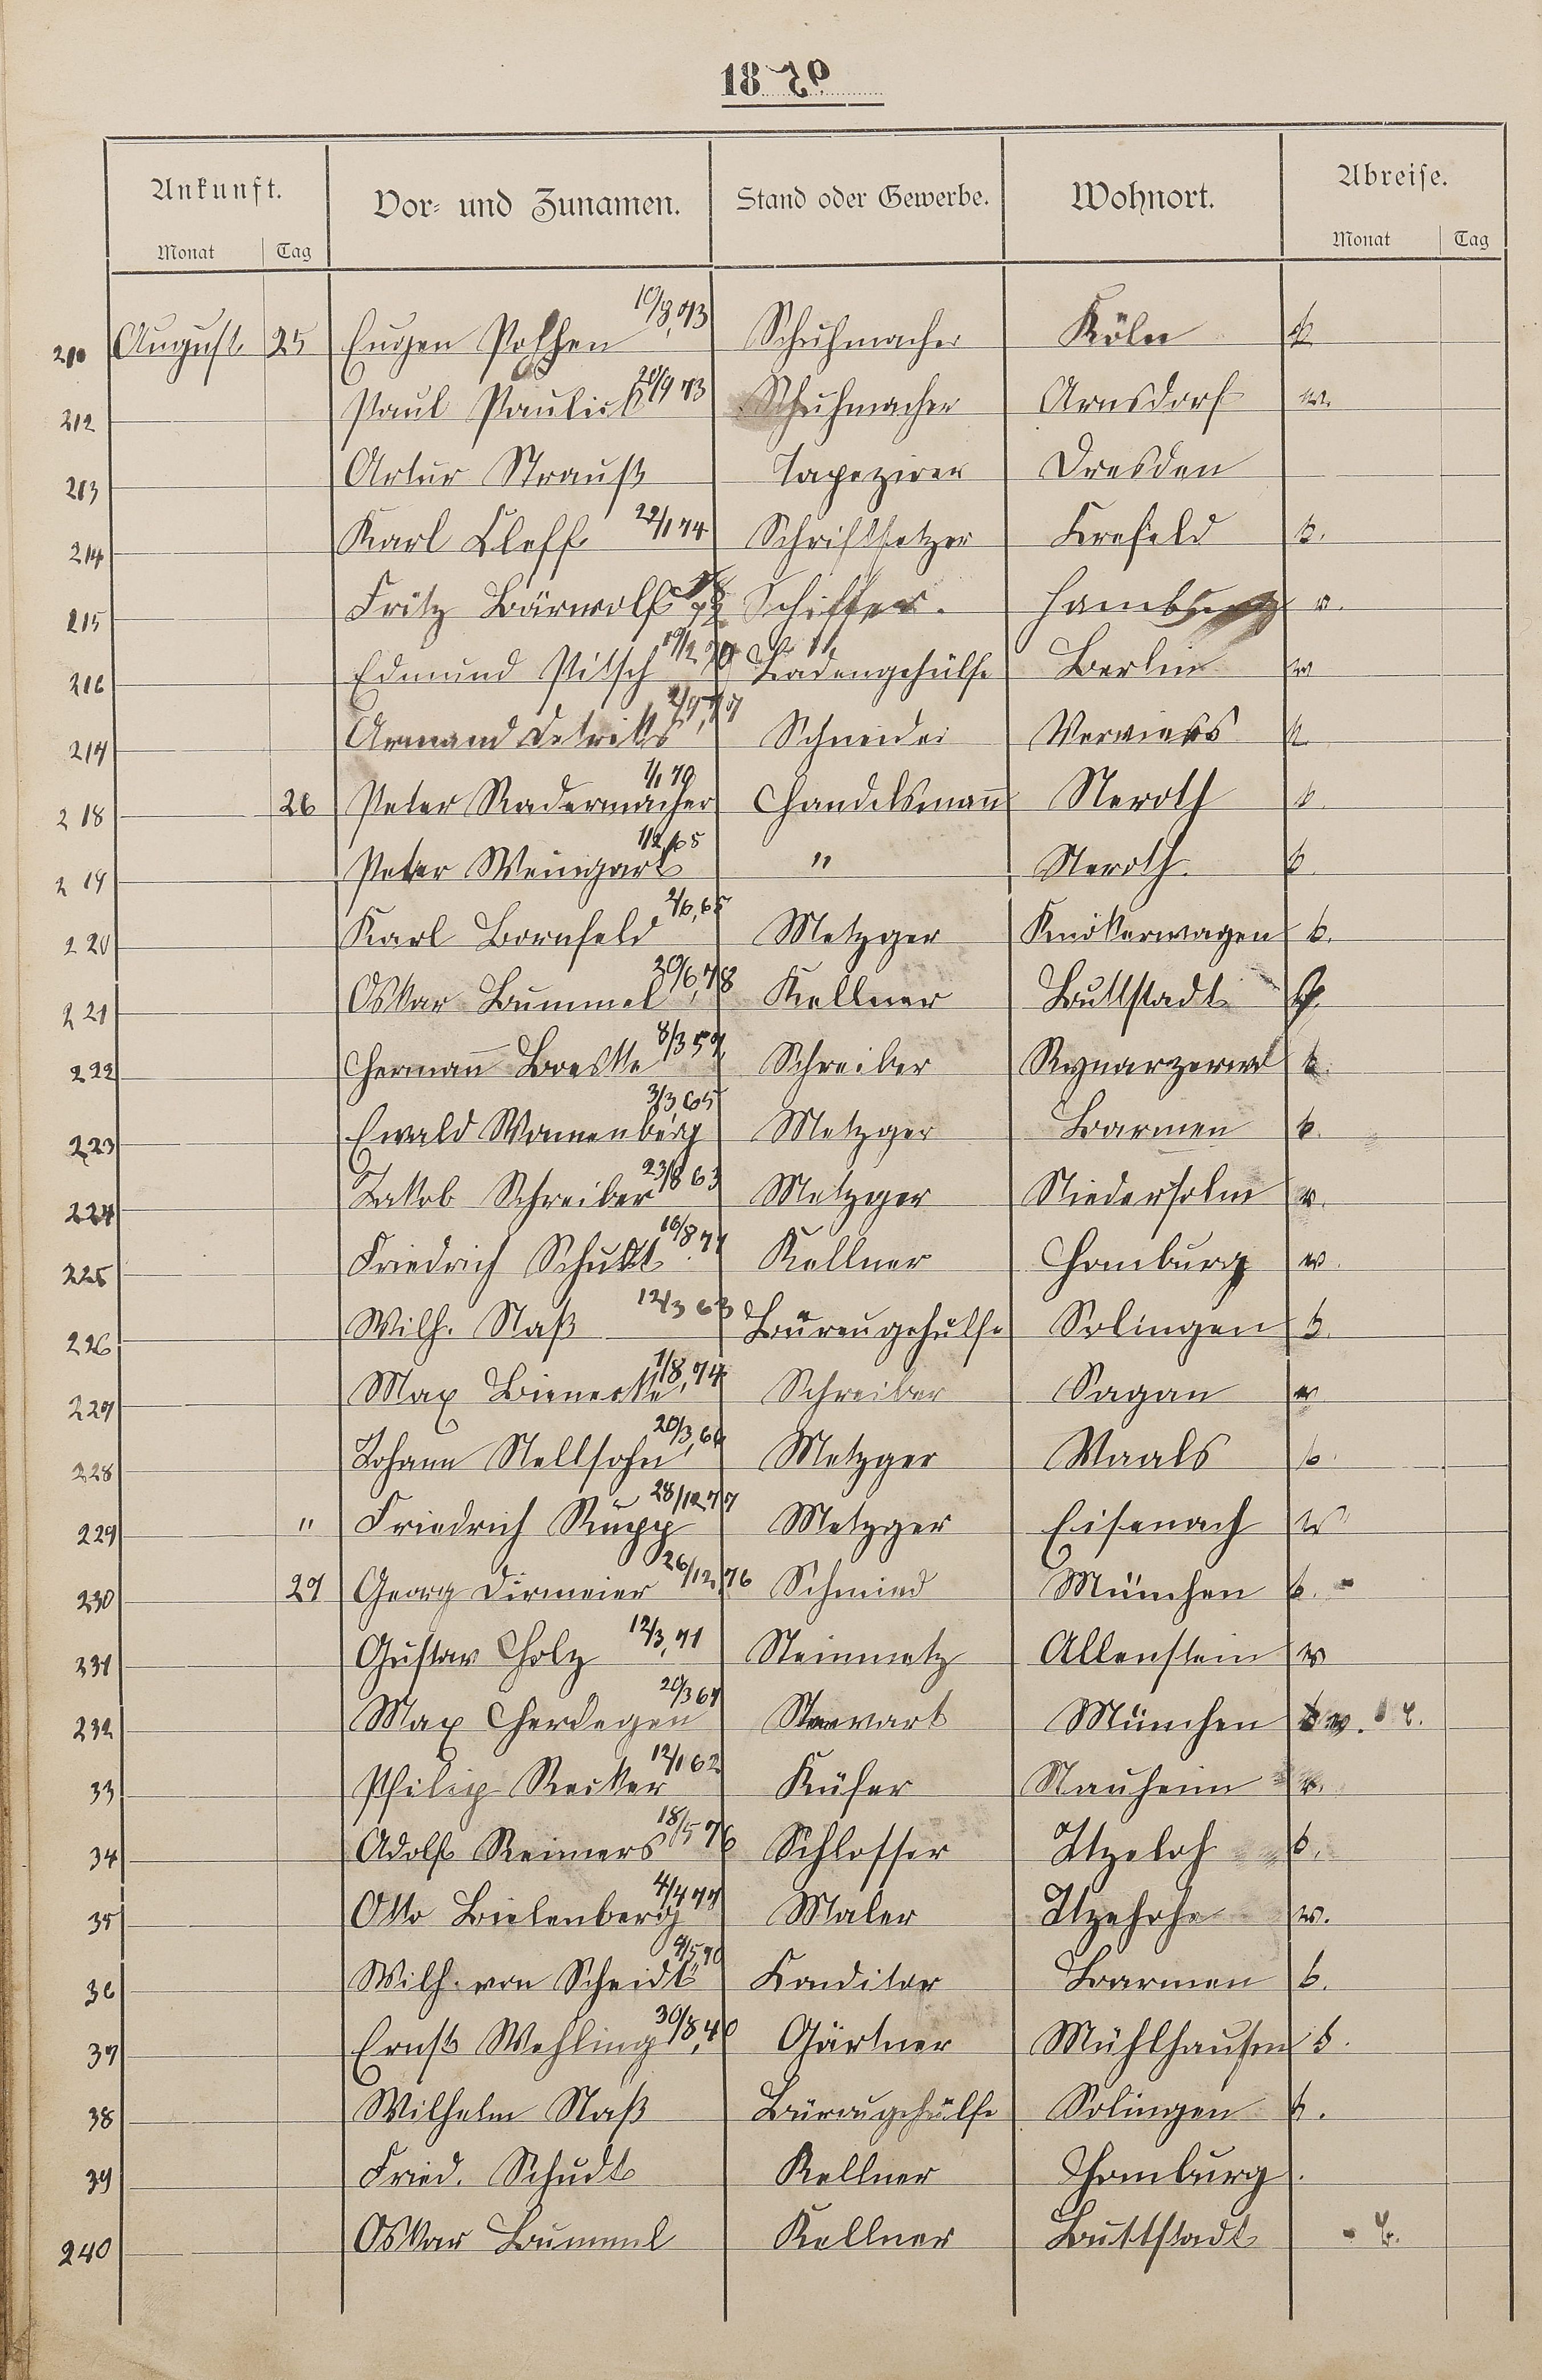 18
Ankunft. Vor- und Zunamen. Stand oder Gewerbe. Wohnort. Abreise.
Monat Tag Monat Tag
August 25 Eugen 10/8,73 Schuhmacher Köln
212 Paul 73 Schuhmacher Arnsdorf w.
213 Artur Strauß Tapezirer Dresden
214 Karl Cleff 22/1 74 Schriftsetzer Krefeld b.
215 Fritz Bärwolf Schiffer. Hamburg
216 Edmund Pitsch Ladengehülfe Berlin w
217 Armand Schneider
218 26 Peter Radermacher Handelsmann Neroth b.
219 Peter Weingart 1/2,65 " Neroth. b.
220 Karl Bornfeld 2/6,65 Metzger b.
221 Oskar Bummel 30/6,78 Kellner Buttstadt
222 Hermann 8/3 57 Schreiber b.
223 Ewald Wannenberg 3/3,65 Metzger Barmen b.
224 Jakob Schreiber 23/8 63 Metzger
225 Friedrich Schudt 16/8.77 Kellner Homburg w.
226 Wilh. Naß 12/3 63 Büreugehülfe Solingen b.
227 Max Bienecke 1/8,74 Schreiber Sagan w
228 Johann Nellsohn 20/3,64 Metzger Vaals b.
229 " Friedrich Rupp 28/12 77 Metzger Eisenach w
230 27 Georg Dirmeier 26/12,76 Schmied München b.
231 Gustav Holz 12/3,71 Steinmetz Allenstein w
232 Max Herdegen 20/3 67 Stewart München
33 Philip Recker 12/1 62 Küfer Nauheim
34 Adolf Reimers 18/5 76 Schlosser Itzeloh b.
35 Otto Bielenberg 4/4 77 Maler Itzehohe w.
36 Wilh. von Scheidt Konditor Barmen b.
37 Ernst Wehling 30/8,40 Gärtner Mühlhausen b.
38 Wilhelm Naß Büreugehülfe Solingen b.
39 Fried. Schudt Kellner Homburg
240 Oskar Bummel Kellner Buttstadt